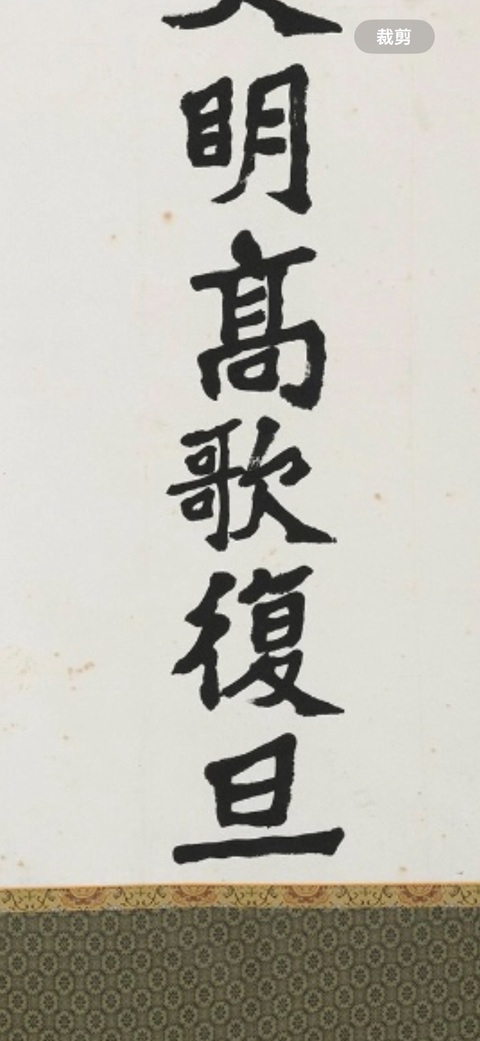 裁剪
明高歌復旦